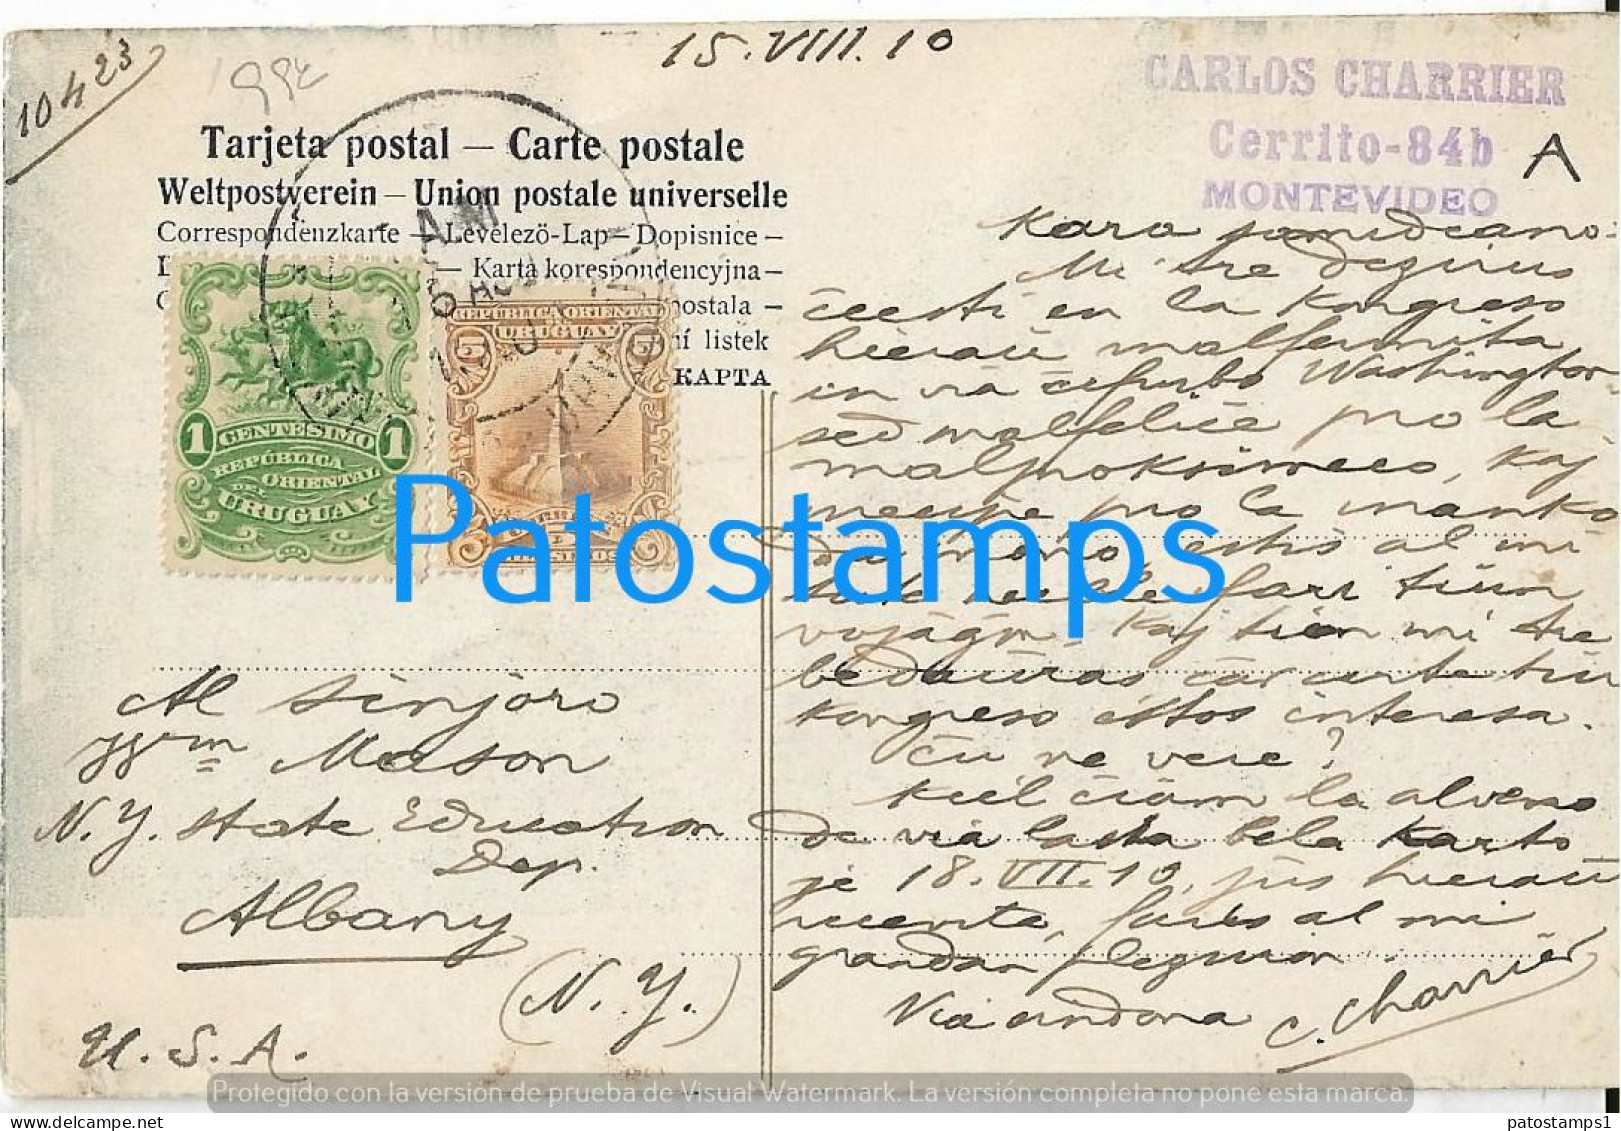 10423
15.VIII.10
CARLOS CHARRIER
Cerrito-84b
MONTEVIDEO
A
Tarjeta postal — Carte postale
Weltpostverein — Union postale universelle
Correspondenzkarte — Levelező-Lap — Dopisnice —
— Karta korespondencyjna —
postala —
ní listek
КАРТА
1 CENTÉSIMO 1
REPÚBLICA
ORIENTAL
DEL
URUGUAY
REPÚBLICA ORIENTAL
URUGUAY
5 5
Kara samideano:
Mi tre deziris
ĉeesti en la Kongreso
hieraŭ malfermita
en via ĉefurbo Washington
sed malfeliĉe pro la
malproksimeco, kaj
precipe pro la manko
da mono estis al mi
tute neeble fari tiun
vojaĝon, kaj tion mi tre
bedaŭras ĉar certe tiu
kongreso estos interesa.
Ĉu ne vere?
Kiel ĉiam la alveno
de via lasta bela karto
je 18.VII.10, ĵus hieraŭ
ricevita, faris al mi
grandan plezuron
Via andona C. Charrier
Al Sinjoro
Wm Mason
N.Y. State Education
Dep.
Albany
(N.Y.)
U.S.A.
Patostamps
Protegido con la versión de prueba de Visual Watermark. La versión completa no pone esta marca.
patostamps1